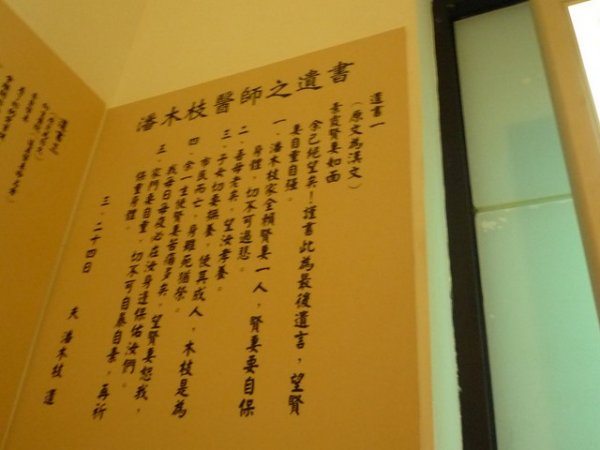 潘木枝醫師之遺書
遺書一
（原文為漢文）
素霞賢妻如面
余已絕望矣！謹書此為最後遺言，望賢
妻自重自強。
一、潘木枝家全賴賢妻一人，賢妻要自保
身體，切不可過悲。
二、吾母老矣，望汝孝養。
三、子女切要撫養，使其成人，木枝是為
市民而亡，身雖死猶榮。
四、余一生使賢妻苦痛多矣。望賢妻恕我，
我每日每夜必在汝身邊保佑汝們。
五、家門要自重，切不可自暴自棄，再祈
保重身體。
三．二十四日　夫　潘木枝　遺